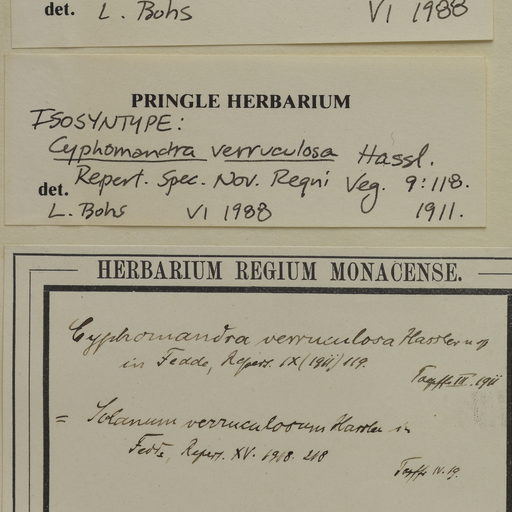 det. L. Bohs VI 1988
PRINGLE HERBARIUM
ISOSYNTYPE:
Cyphomandra verruculosa Hassl.
Repert. Spec. Nov. Regni Veg. 9:118.
det. L. Bohs VI 1988 1911.
HERBARIUM REGIUM MONACENSE.
Cyphomandra verruculosa Hassler n. sp
in Fedde, Repert. IX (1911) 119.
III. 1911
= Solanum verruculosum Hassler in
Fedde, Repert. XV. 1918. 218
IV. 19.